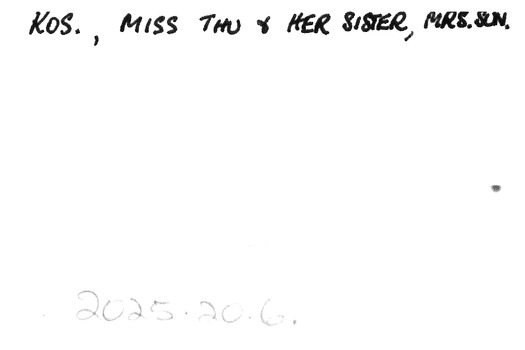 KOS., MISS THU & HER SISTER, MRS. SUN.
2025.20.6.